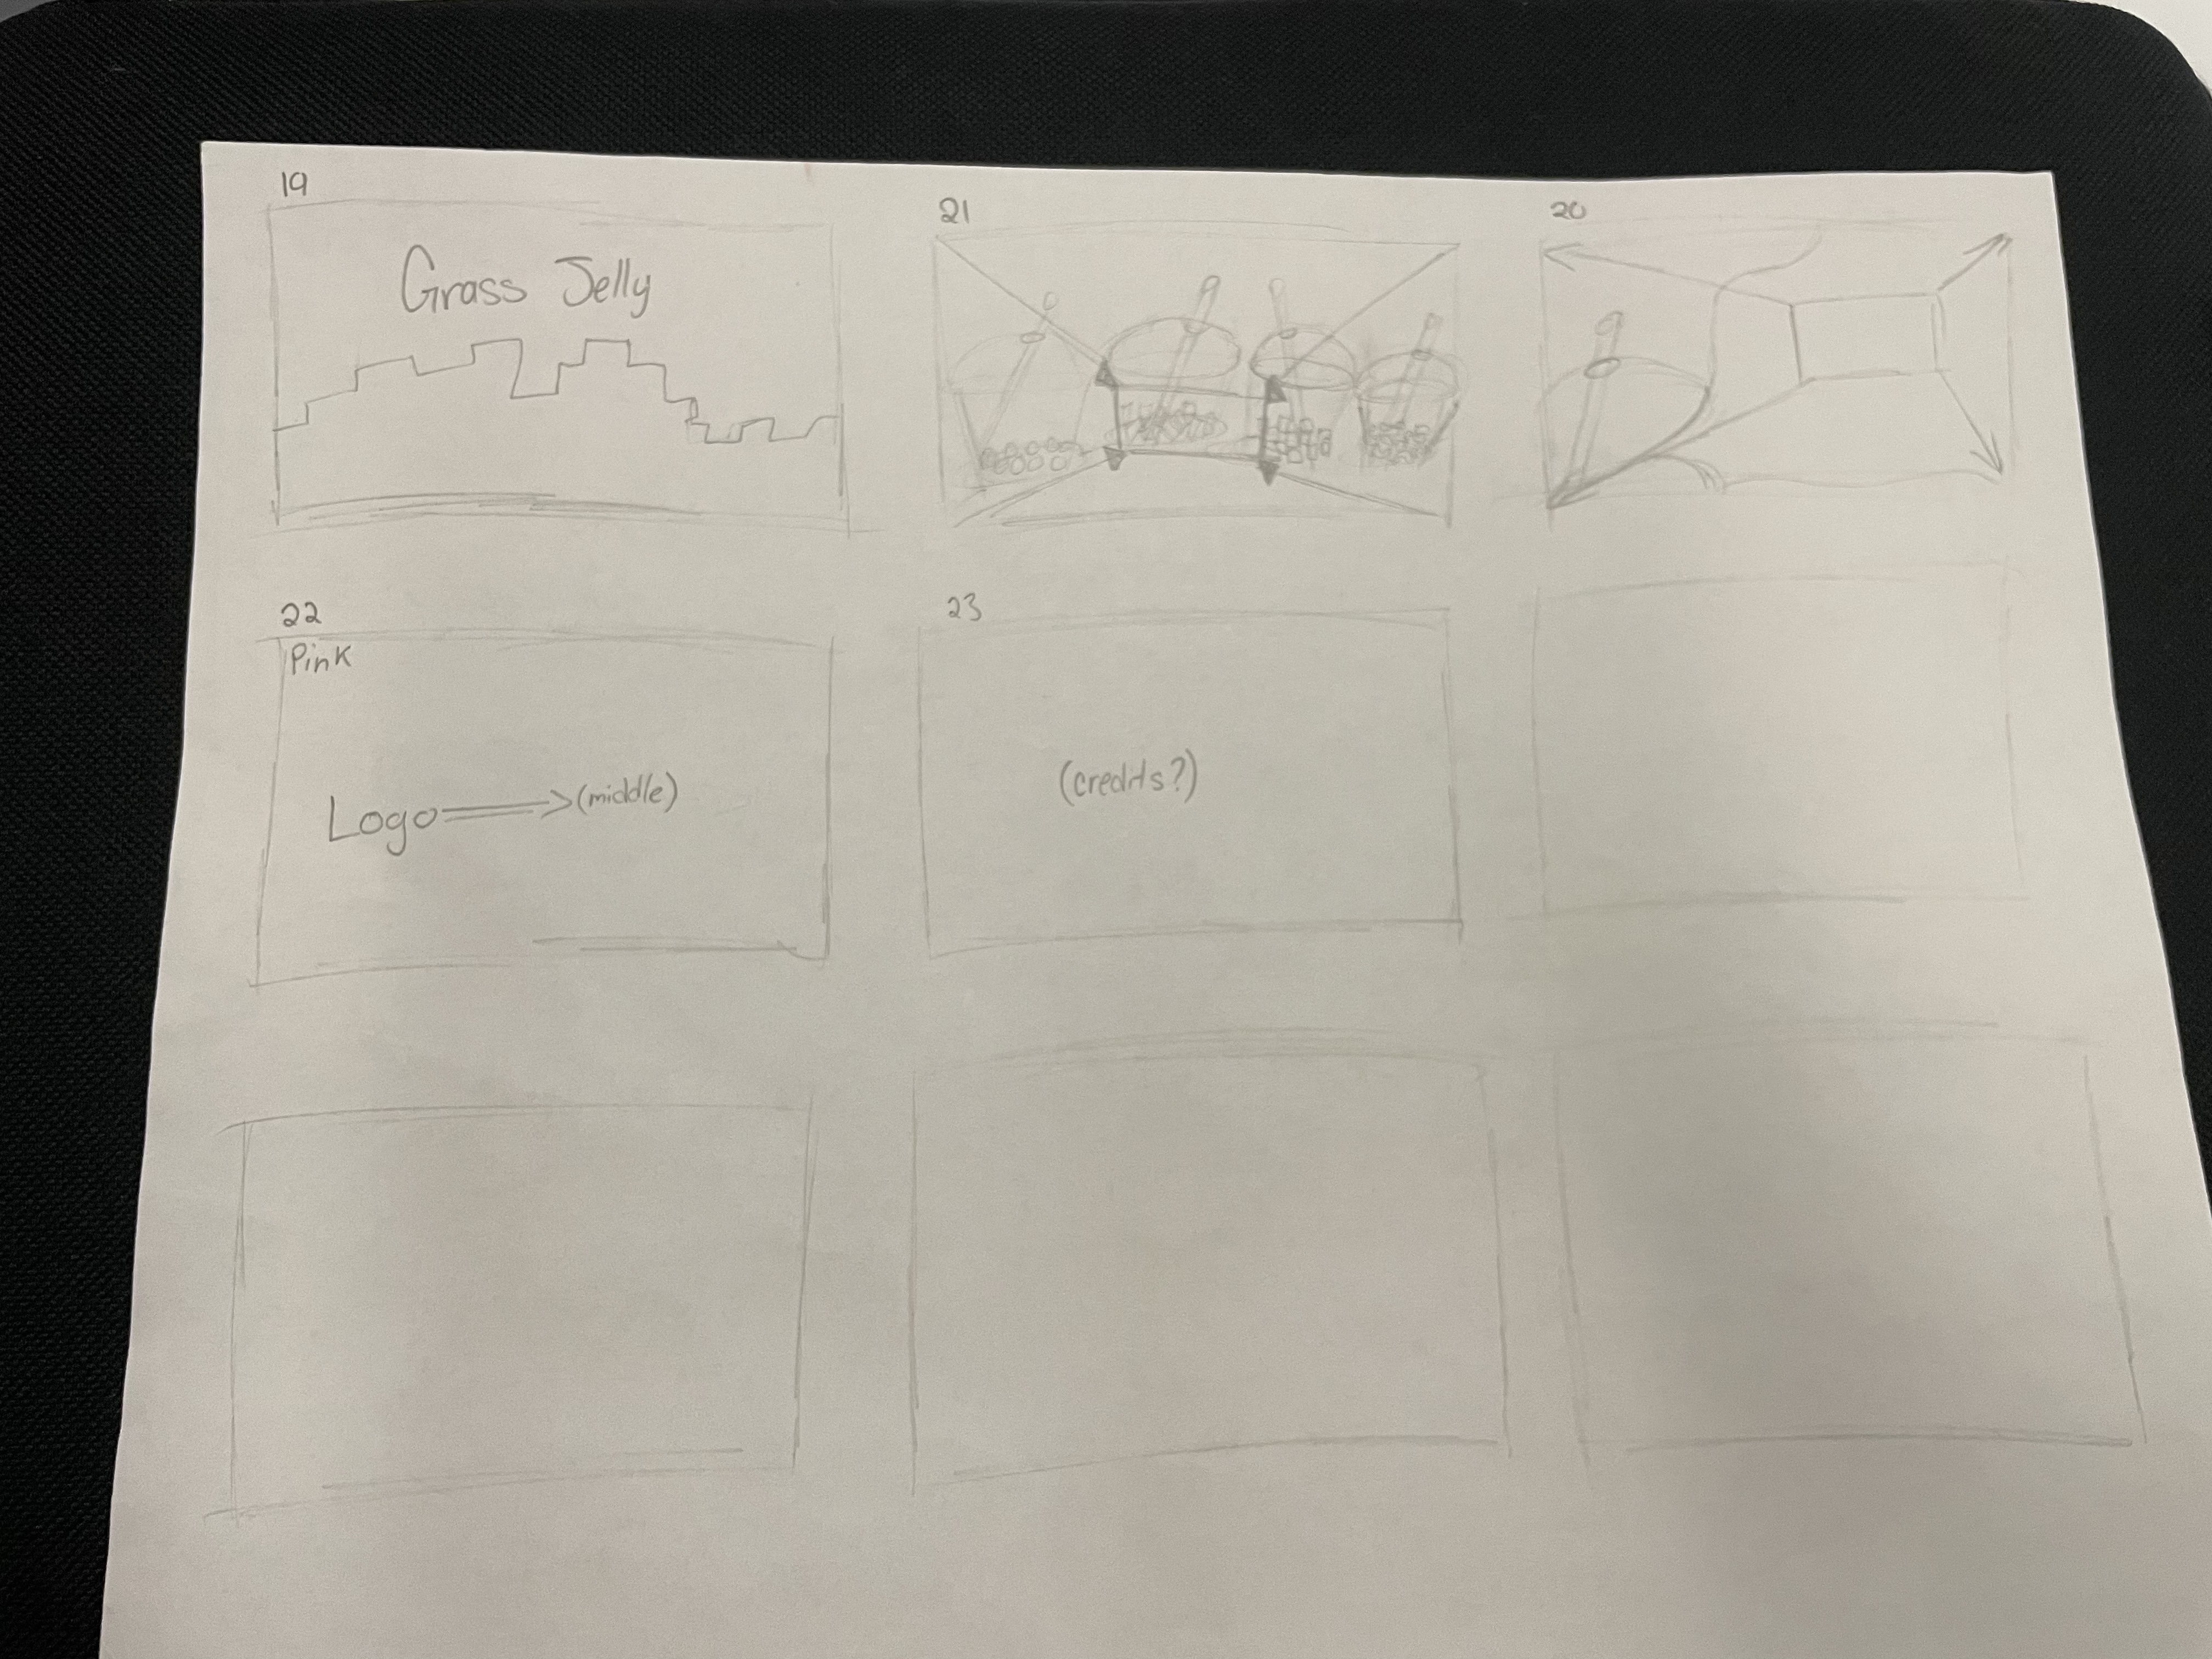 19
Grass Jelly
21
20
22
Pink
Logo (middle)
23
(credits?)